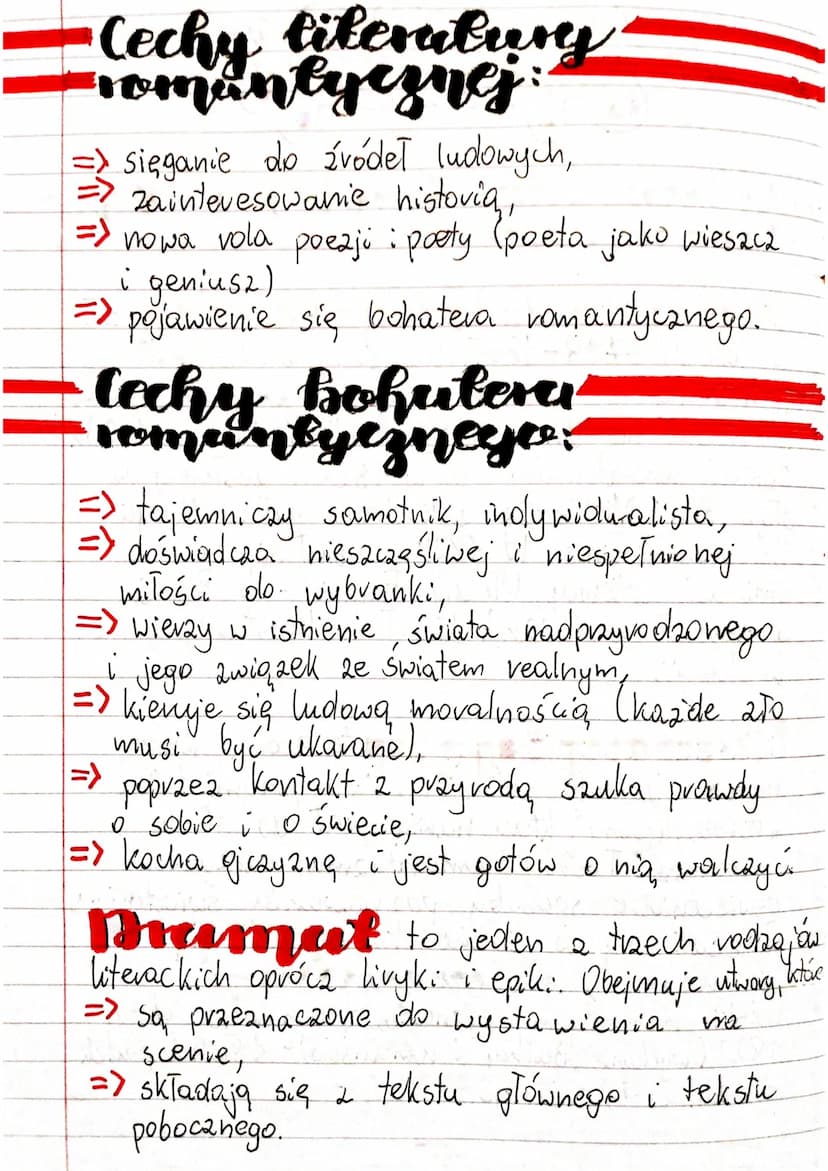 Cechy literatury
romantycznej:
=> sięganie do źródeł ludowych,
=> zainteresowanie historią,
=> nowa rola poezji i poety (poeta jako wieszcz
i geniusz)
=> pojawienie się bohatera romantycznego.
Cechy bohatera
romantycznego:
=> tajemniczy samotnik, indywidualista,
=> doświadcza nieszczęśliwej i niespełnionej
miłości do wybranki,
=> wierzy w istnienie świata nadprzyrodzonego
i jego związek ze światem realnym,
=> kieruje się ludową moralnością (każde zło
musi być ukarane),
=> poprzez kontakt z przyrodą szuka prawdy
o sobie i o świecie,
=> kocha ojczyznę i jest gotów o nią walczyć.
Dramat to jeden z trzech rodzajów
literackich oprócz liryki i epiki. Obejmuje utwory, które
=> są przeznaczone do wystawienia na
scenie,
=> składają się z tekstu głównego i tekstu
pobocznego.